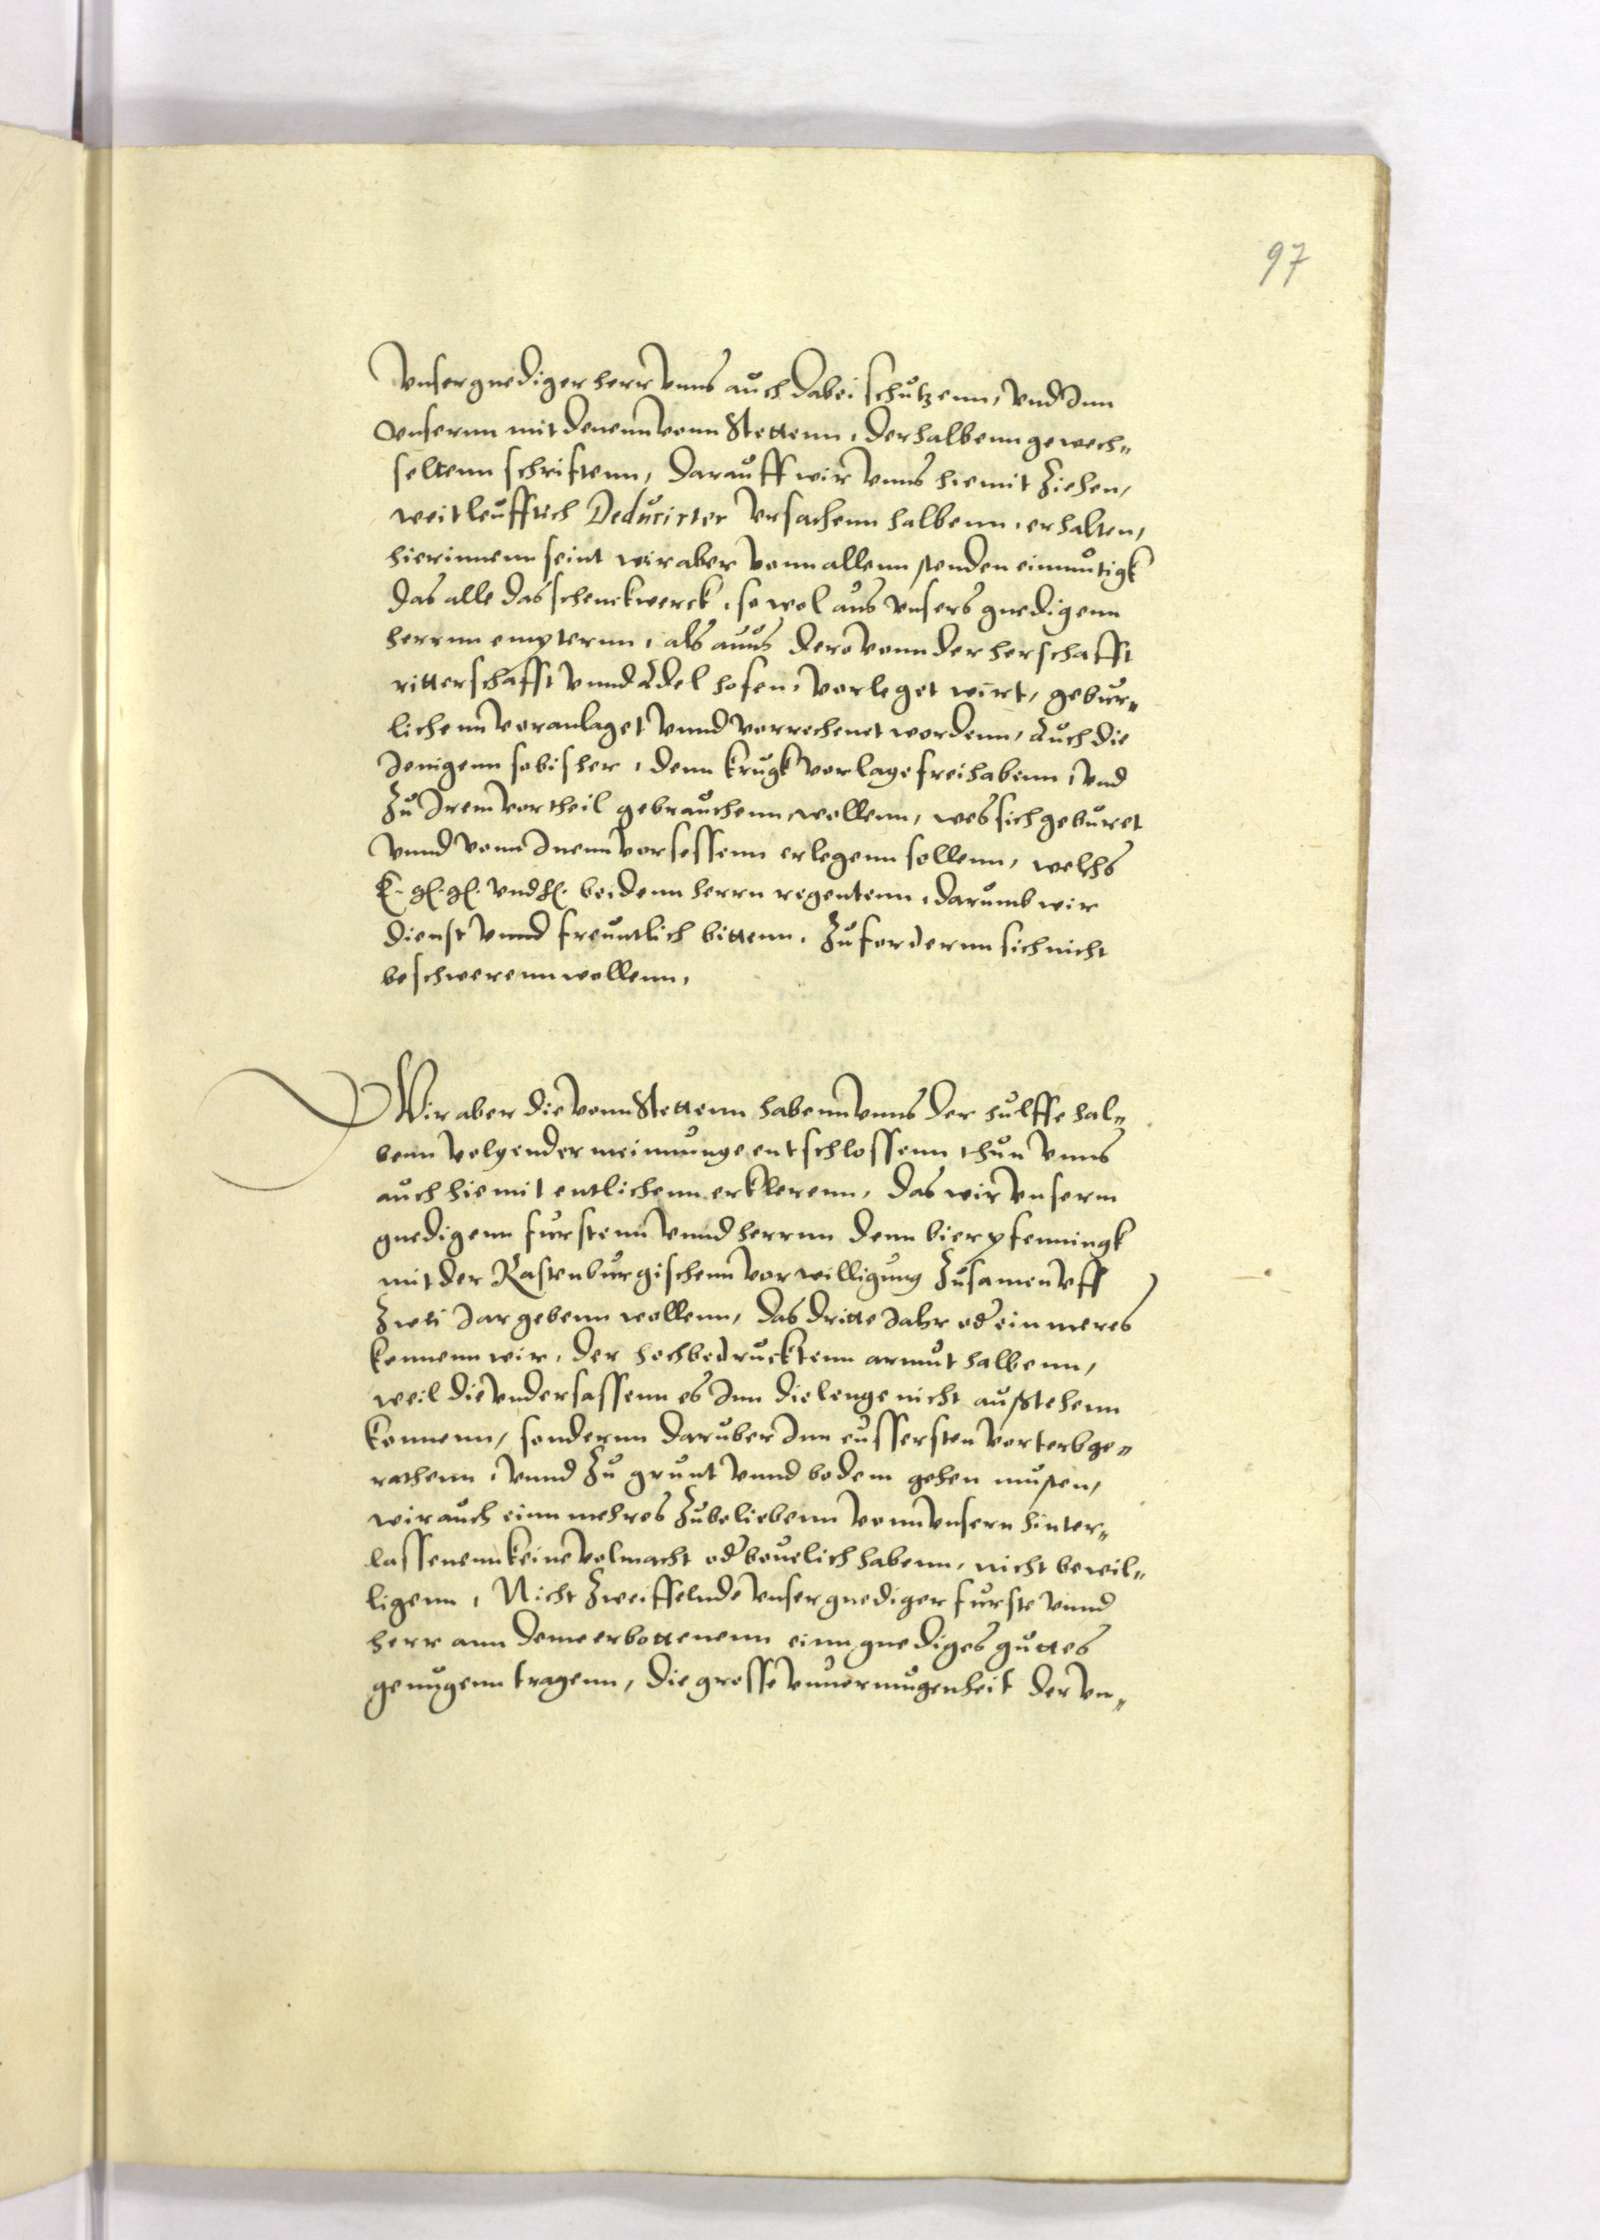 97
Unser gnediger herr unns auch dabei schutzenn, und Inn
Unsernn mit denenn vonn Stettenn, derhalbenn gewech„
seltenn schriftenn, darauff wir unns hiemit Ziehen,
weitleufftich Deducirter Ursachenn halbenn, erhalten,
hierinnenn seint wir aber vonn allenn stenden einmutigk
das alle das schenckwerck, so wol aus unsers gnedigenn
herrnn empternn, als auus dero vonn der herschafft
ritterschafft unnd Adel hofen, vorleget wirt, gebur„
lichenn voranlaget unnd vorrechenet wordenn, Auch die
Jenigenn so bisher, denn krugk vorlage frei habenn, und
Zu Irem vortheil gebrauchenn wollenn, wes sich geburet
unnd vonn Inenn vorsessenn erlegenn sollenn, welchs
E. gl. gl. und hl. bei denn herrn regentenn, darumb wir
dienst unnd freuntlich bittenn, Zu fordernn sich nicht
beschwerenn wollenn,
Wir aber die vonn Stettenn habenn unns der hulffe hal„
benn volgender meinunge entschlossenn thun unns
auch hiemit entlichenn erklerenn, das wir unserm
gnedigenn furstenn unnd herrnn denn bierpfenningk
mit der Rastenburgischenn vorwilligung Zusamen uff
Zwei Jar gebenn wollenn, das dritte Jahr od ein meres
konnenn wir, der hochbedrucktenn armut halbenn,
weil die undersassenn es Inn die lenge nicht ausstehenn
konnenn, sondernn daruber Inn eussersten vorterb ge„
rathenn, unnd Zu grunt unnd bodem gehen musten,
wir auch einn mehres Zubeliebenn vonn unsern hinter„
lassenenn keine volmacht od bevelich habenn, nicht bewil„
ligenn, Nicht Zweiffelnde unser gnediger furste unnd
herr ann deme erbottenenn einn gnediges guttes
genugenn tragenn, die grosse unvermugenheit der un„